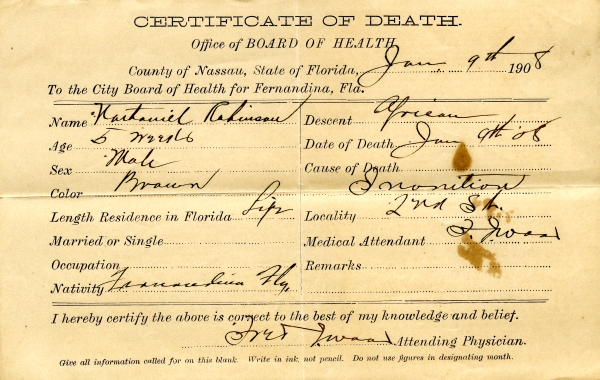 CERTIFICATE OF DEATH.
Office of BOARD OF HEALTH
County of Nassau, State of Florida, Jan 9th 1908
To the City Board of Health for Fernandina, Fla.
Name Nathaniel Robinson
Age 5 weeks
Sex Male
Color Brown
Length Residence in Florida Life
Married or Single
Occupation
Nativity Fernandina Fla.
Descent African
Date of Death Jan 9th 08
Cause of Death
Inanition
Locality 2nd St.
Medical Attendant
Remarks
I hereby certify the above is correct to the best of my knowledge and belief.
Attending Physician.
Give all information called for on this blank. Write in ink, not pencil. Do not use figures in designating month.